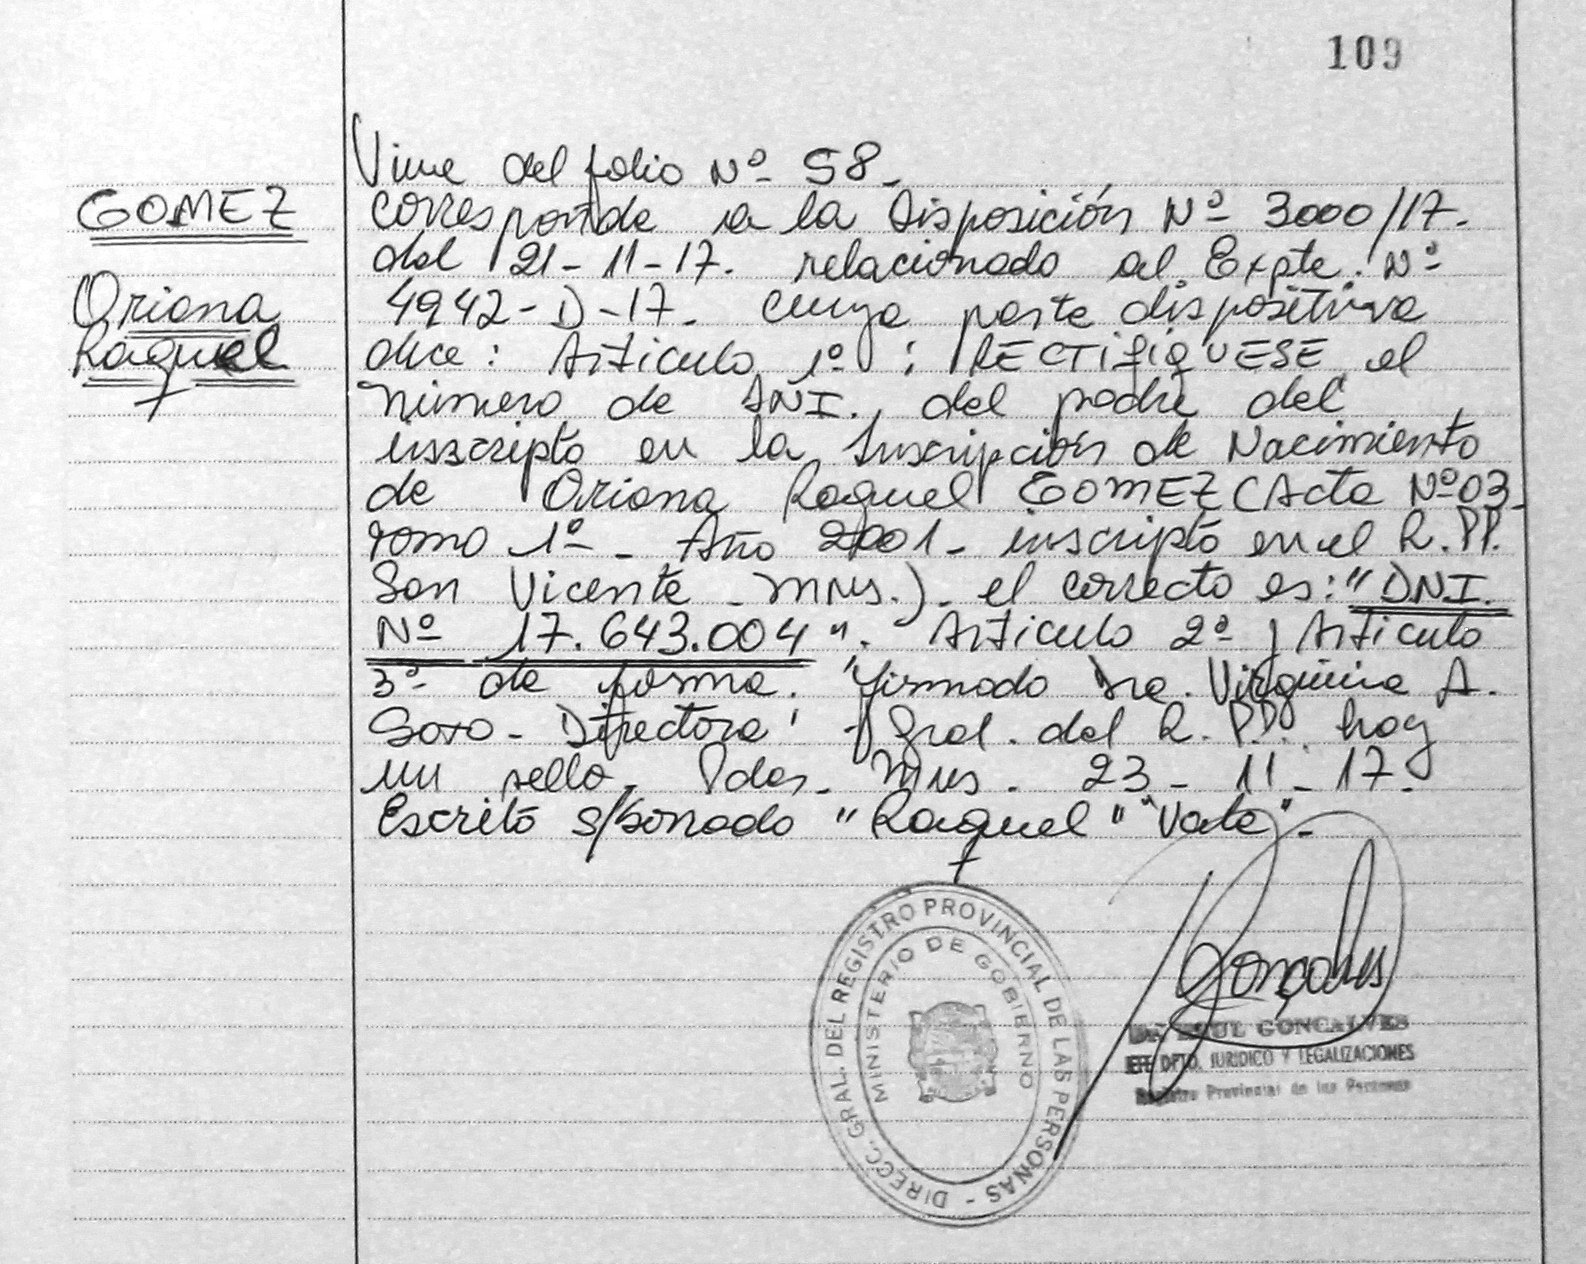 109
Viene del folio Nº 58_
GOMEZ
Oriana
Raquel
corresponde a la Disposición Nº 3000/17.
del 21-11-17. relacionado al Expte. Nº
4942-D-17_ cuya parte dispositiva
dice: Artículo 1º: RECTIFIQUESE el
número de DNI., del padre del
inscripto en la Inscripción de Nacimiento
de Oriana Raquel GOMEZ (Acta Nº03_
Tomo 1º_ Año 2001_ inscripto en el R.PP.
San Vicente _ Mnes.)_ el correcto es: "DNI.
Nº 17.643.004". Artículo 2º, Artículo
3º de forma. "firmado Dra. Virginia A.
Soto_ Directora Gral. del R.PP. hay
un sello_ Pdas_ Mnes. 23_11_17.
Escrito s/borrado "Raquel" "Vale"_
DIRECC. GRAL. DEL REGISTRO PROVINCIAL DE LAS PERSONAS -
MINISTERIO DE GOBIERNO
Gonçalves
GONCALVES
JEFE DPTO. JURIDICO Y LEGALIZACIONES
Registro Provincial de las Personas